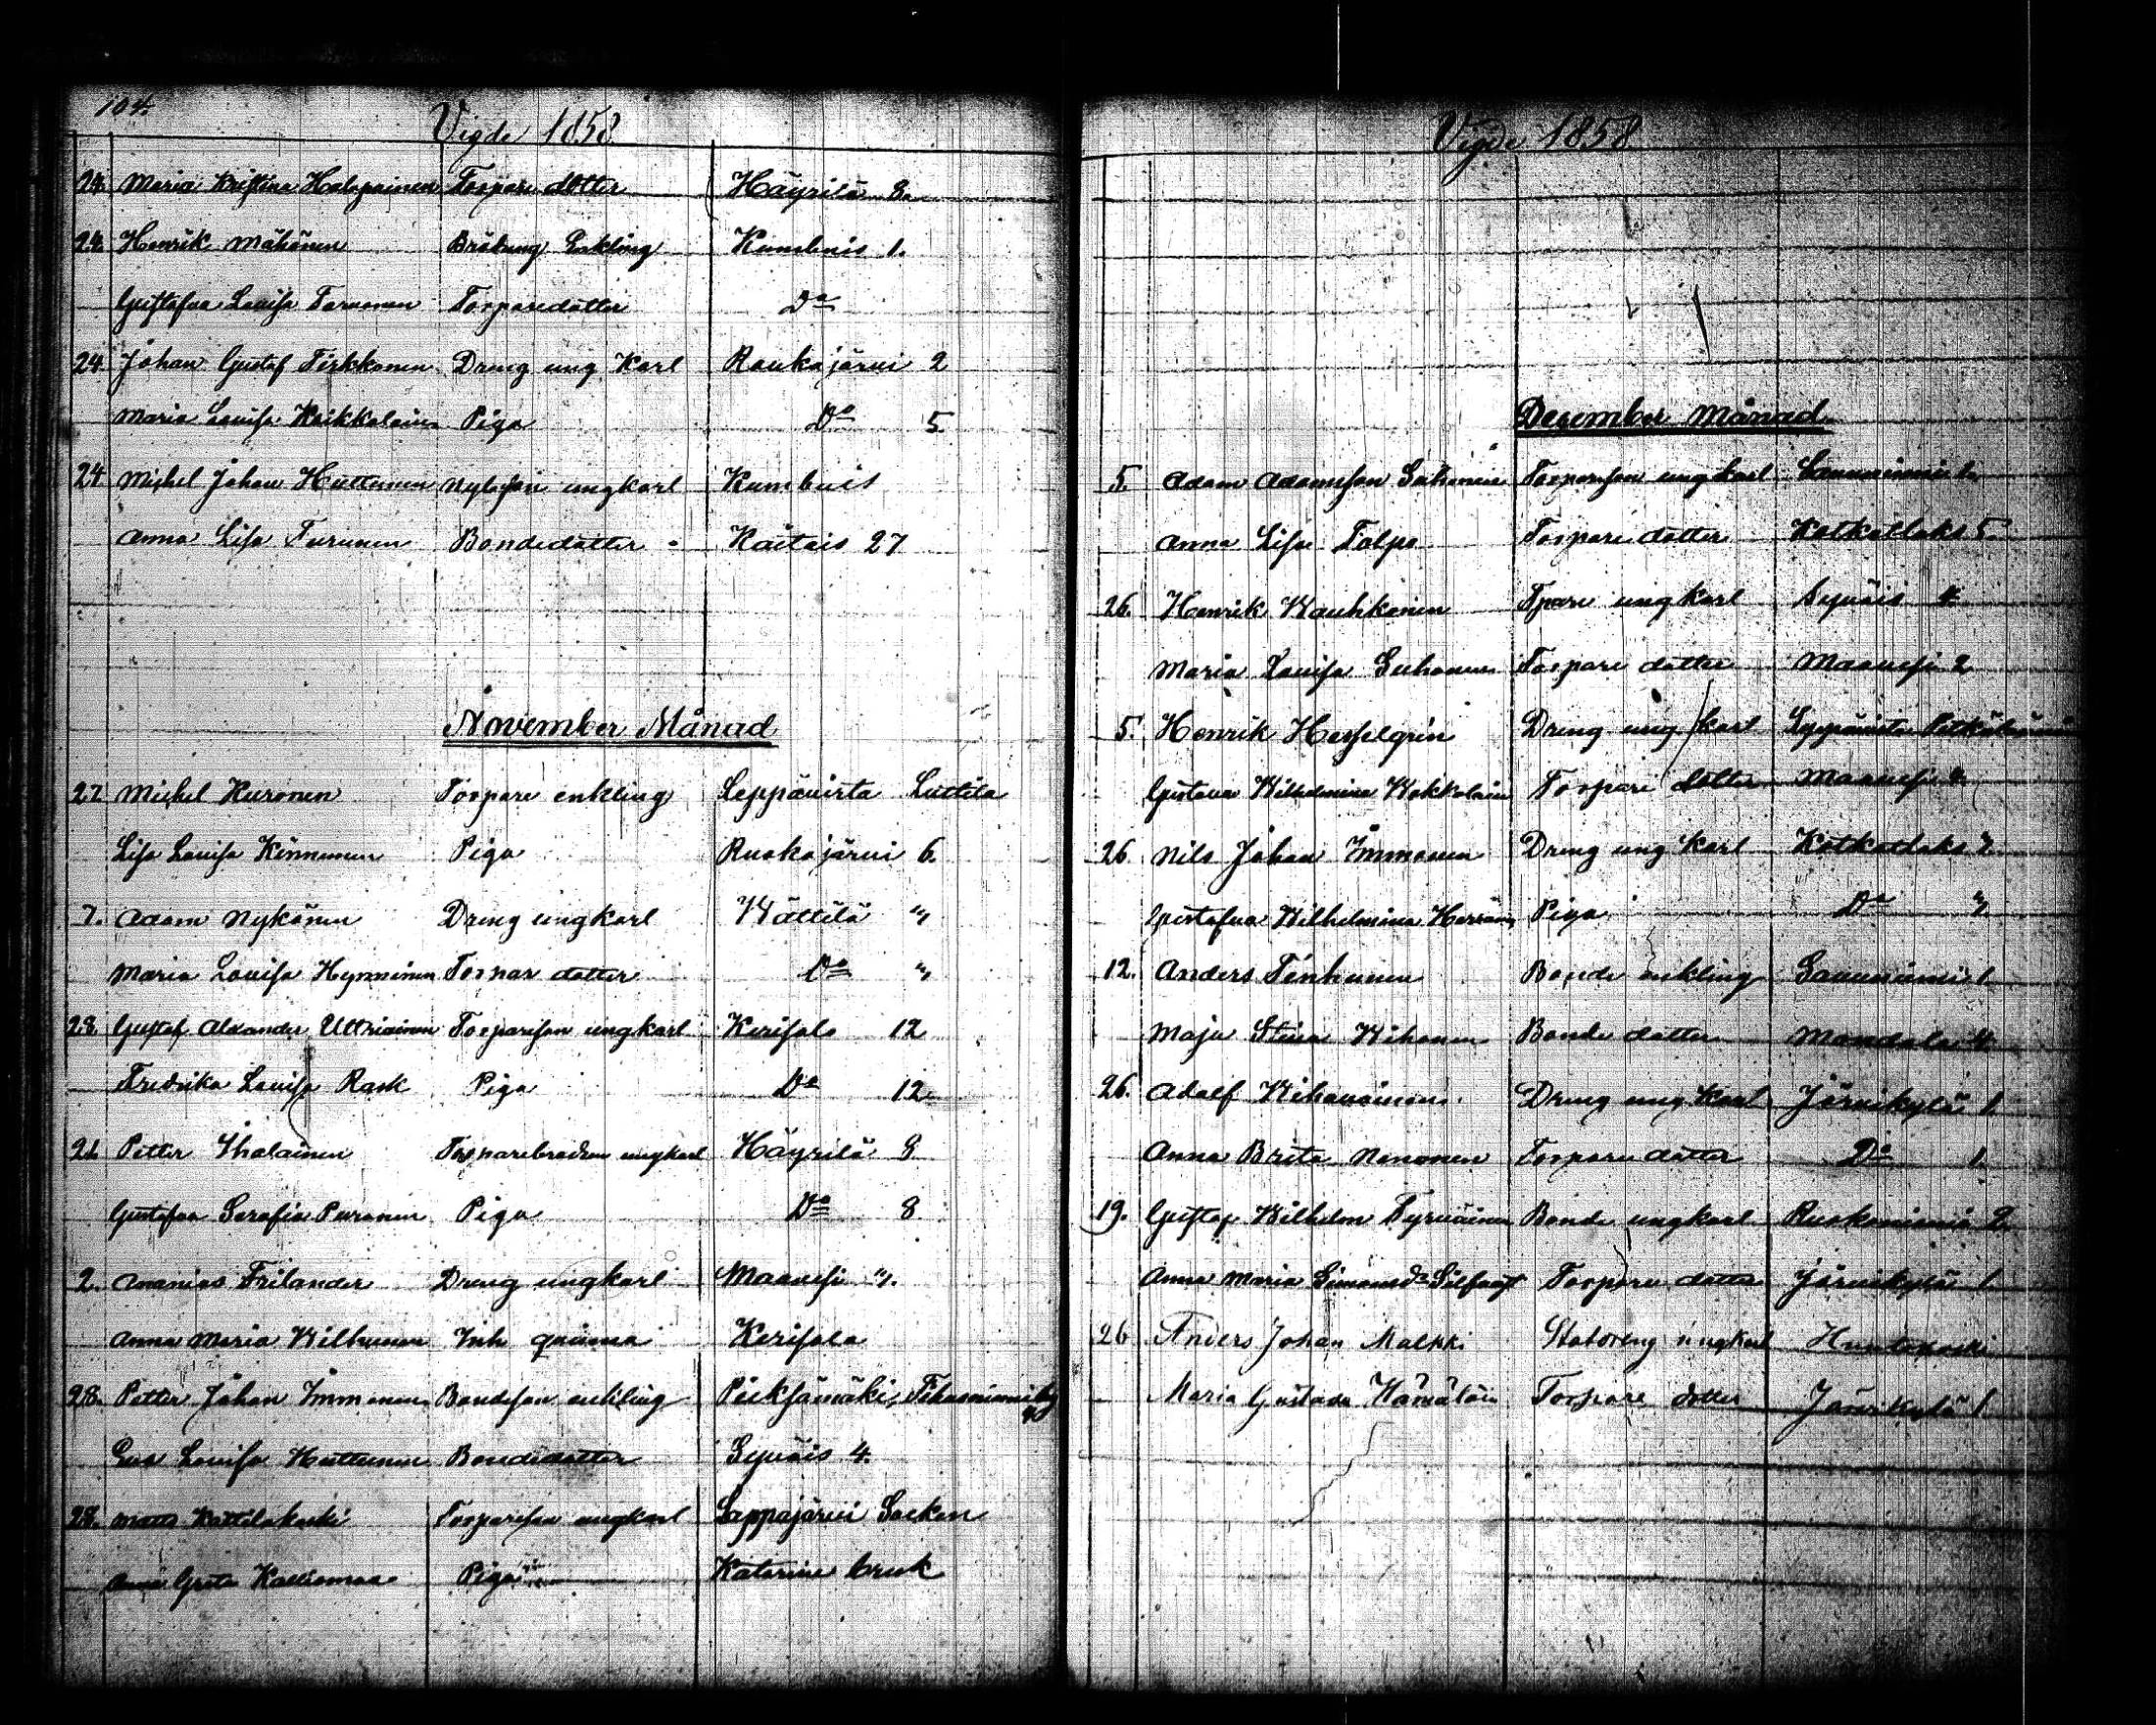 104.
Vigde 1858
24. Maria Kristina Halopainen Torpare dotter Häyrilä 8.
24. Henrik Mähönen Enkling Kumbuis 1.
Gustafva Lovisa Torparedotter Do
24 Johan Gustaf Tirkkonen Dreng ung Karl Roukojärvi 2
Maria Lovisa Piga Do 5
24 Michel Johan Huttunen ungkarl Kumbuis
Anna Lisa Turunen Bondedotter Kaitais 27
November Månad
27 Michel Kuronen Torpare enkling Leppävirta Luttila
Lisa Lovisa Kinnunen Piga Ruokojärvi 6.
7. Adam Nykänen Dreng ungkarl Wättilä "
Maria Lovisa Hynninen Torpar dotter Do "
28 Gustaf Alexander Uttriainen Torpareson ungkarl Kerisalo 12
Fredrika Lovisa Rask Piga Do 12
21. Petter Ihalainen ungkarl Häyrilä 8
Gustafva Serafia Puronen Piga Do 8
2. Ananias Frilander Dreng ungkarl Maavesi ".
Anna Maria Wilhunen Inh qvinna Kerisalo
28. Petter Johan Immonen Bondeson enkling Pieksämäki
Eva Lovisa Huttunen Bondedotter Syväis 4.
28. Matts Kattilakoski Torpareson ungkarl Lappajärvi Socken
Anna Greta Piga Katarine bruk
Vigde 1858
December Månad
5. Adam Adamson Suhonen Torpareson ungkarl Savuniemi 1.
Anna Lisa Tolpo Torpare dotter Kotkatlaks 5.
26. Henrik Kauhkonen Tpare ungkarl Syväis 4.
Maria Lovisa Suhonen Torpare dotter Maavesi 2
5 Henrik Hesselgrén Dreng ung karl
Gustava Wilhelmina Torpare dotter Maavesi
26 Nils Johan Immonen Dreng ung Karl Kotkatlaks 7.
Gustafva Wilhelmina Piga Do "
12. Anders Tenhunen Bonde enkling Savuniemi 1.
Maja Stina Wihonen Bonde dotter Montola 4.
26. Adolf Wihavainen Dreng ung Karl Järvikylä 1.
Anna Brita Nenonen Torpare dotter Do 1.
19. Gustaf Wilhelm Tyrväinen Bonde ungkarl Ruokoniemi 2.
Anna Maria Simonsdr Torpare dotter Järvikylä 1.
26 Anders Johan Malkki Statdreng ungkarl Huutokoski
Maria Gustava Hämäläin Torpare dotter Järvikylä 1